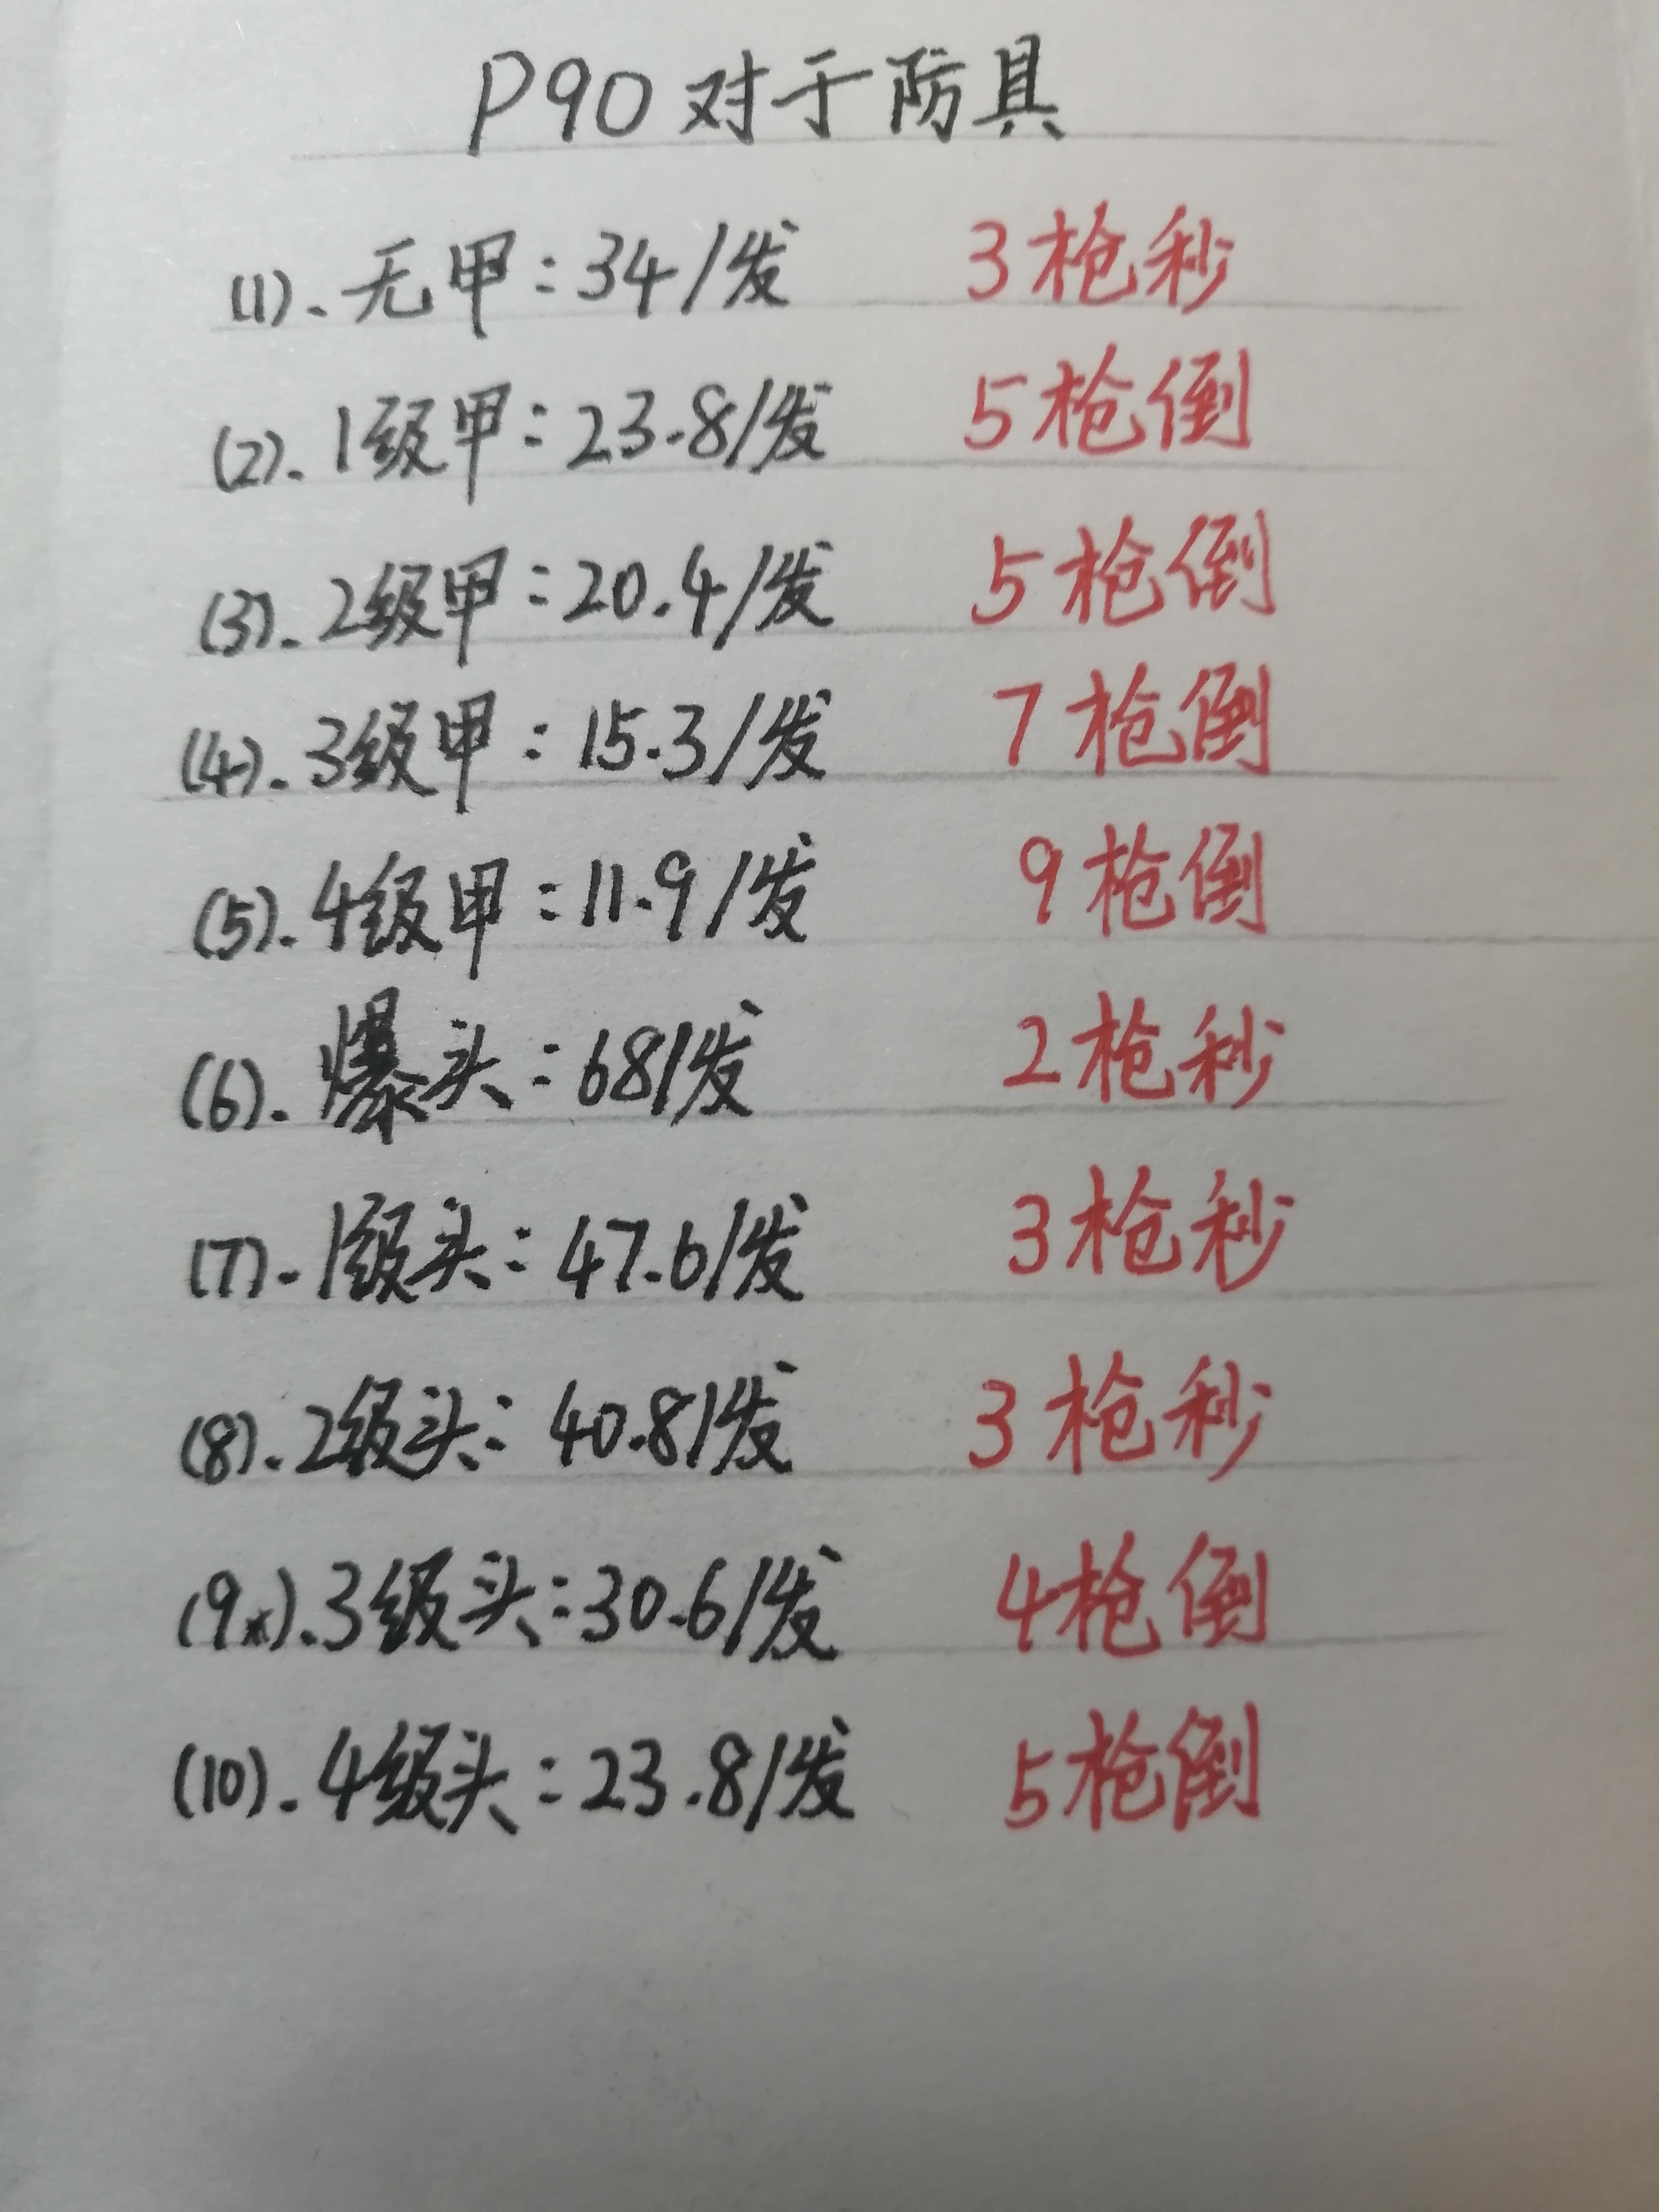 P90对于防具
(1).无甲:34/发 3枪秒
(2).1级甲:23.8/发 5枪倒
(3).2级甲:20.4/发 5枪倒
(4).3级甲:15.3/发 7枪倒
(5).4级甲:11.9/发 9枪倒
(6).爆头:68/发 2枪秒
(7).1级头:47.6/发 3枪秒
(8).2级头:40.8/发 3枪秒
(9*).3级头:30.6/发 4枪倒
(10).4级头:23.8/发 5枪倒